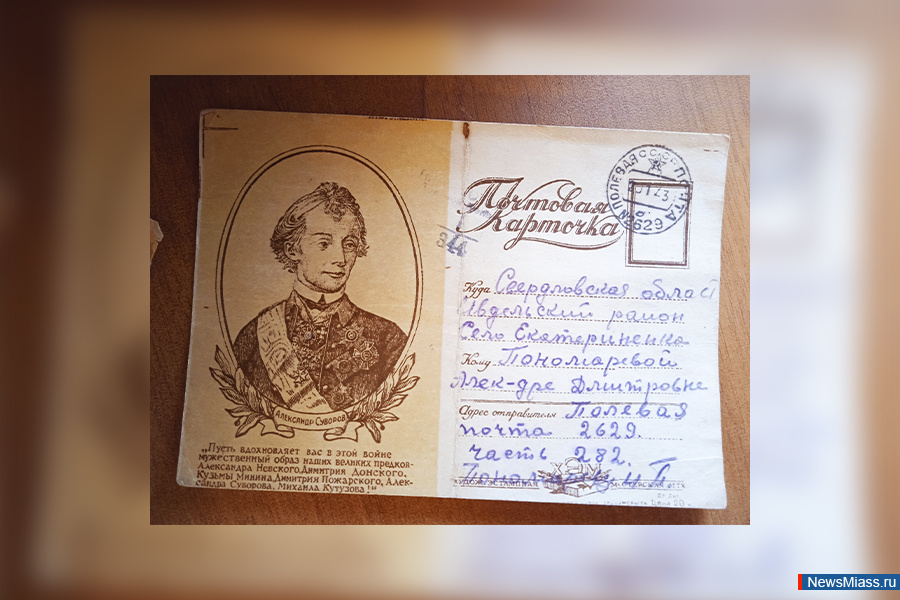 Александр Суворов
„Пусть вдохновляет вас в этой войне
мужественный образ наших великих предков-
Александра Невского, Димитрия Донского,
Кузьмы Минина, Димитрия Пожарского, Алек-
сандра Суворова, Михаила Кутузова!"
Почтовая
Карточка
344
ПОЛЕВАЯ ПОЧТА
СССР
2629
Куда Свердловская област
Ивдельский район
Село Екатериненка
Кому Пономаревой
Алек-дре Дмитровне
Адрес отправителя Полевая
почта 2629.
часть 282.
NewsMiass.ru